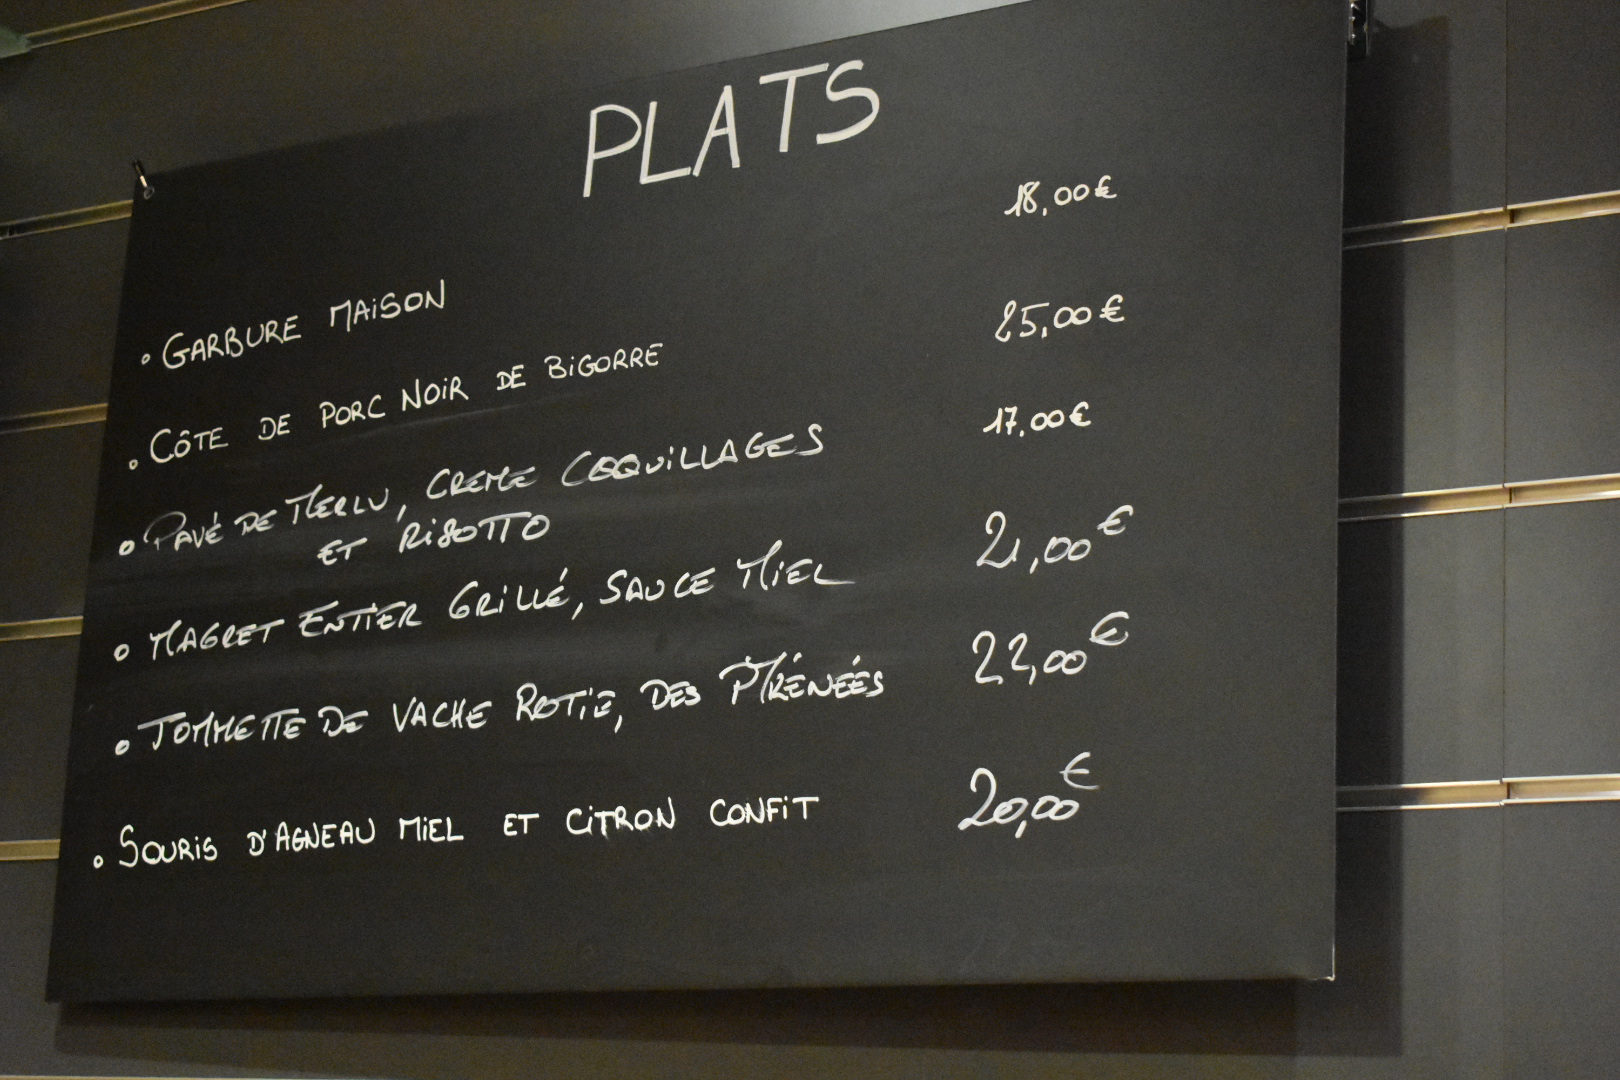 PLATS
• GARBURE MAISON 18,00€
• CÔTE DE PORC NOIR DE BIGORRE 25,00€
• PAVÉ DE MERLU, CREME COQUILLAGES 17,00€
ET RISOTTO
• MAGRET ENTIER GRILLÉ, SAUCE MIEL 21,00€
• TOMMETTE DE VACHE ROTIE, DES PYRÉNÉES 22,00€
• SOURIS D'AGNEAU MIEL ET CITRON CONFIT 20,00€